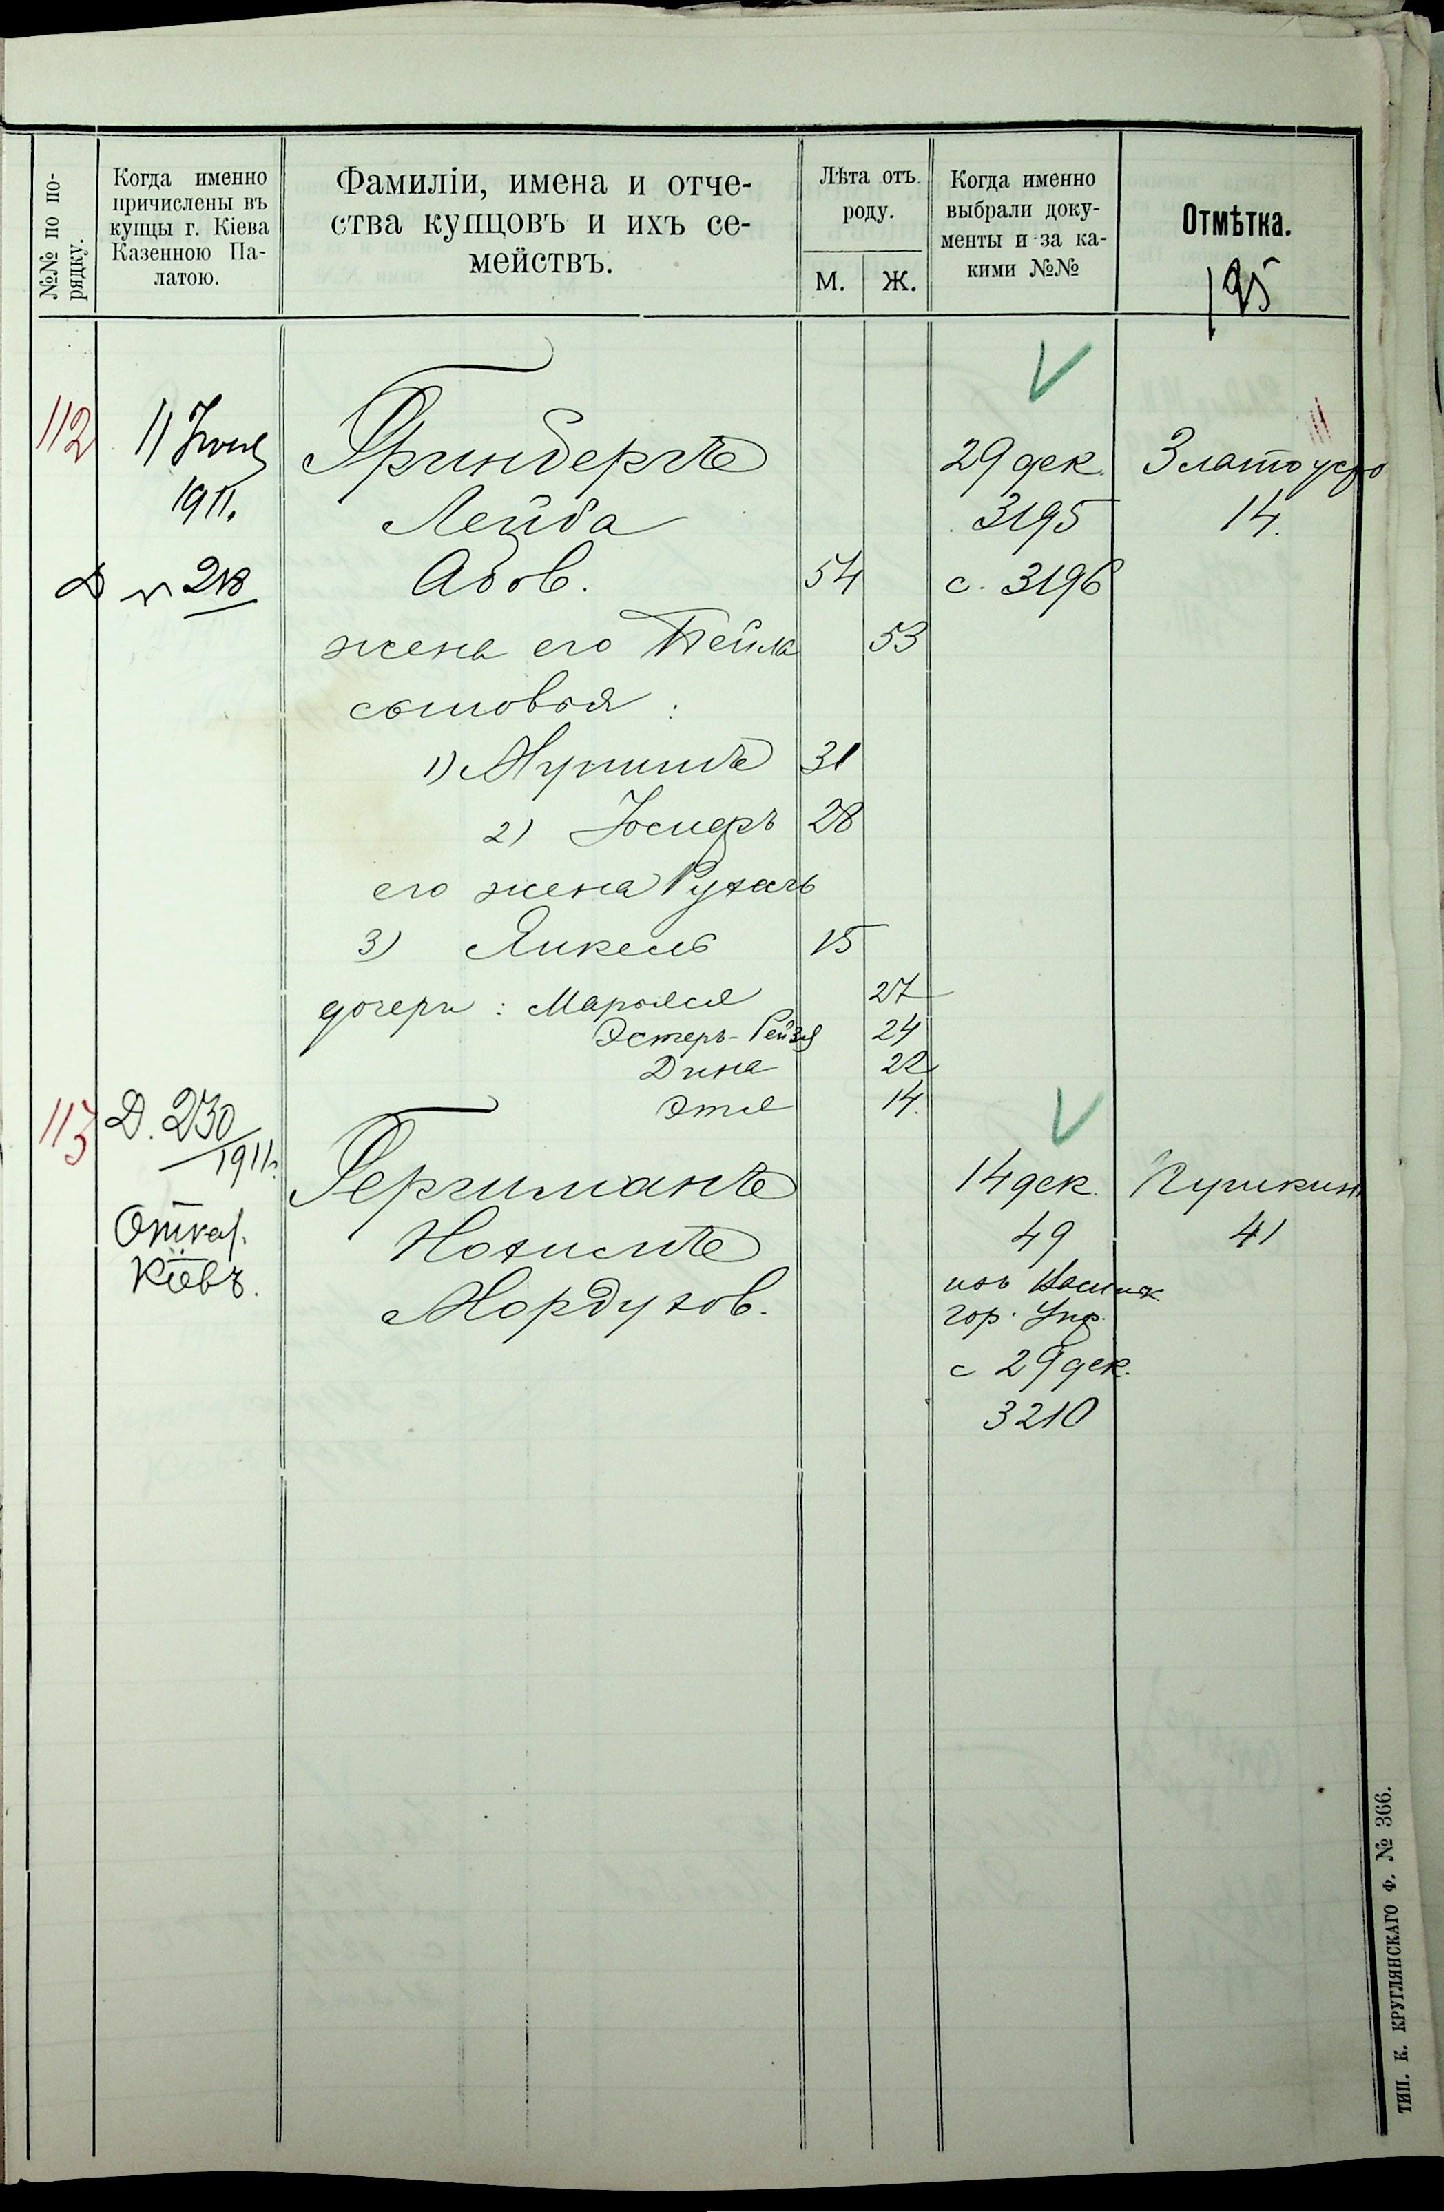 №№ по по-
рядку.
Когда именно
причислены въ
купцы г. Кіева
Казенною Па-
латою.
Фамиліи, имена и отче-
ства купцовъ и ихъ се-
мействъ.
Лѣта отъ
роду.
М. Ж.
Когда именно
выбрали доку-
менты и за ка-
кими №№
Отмѣтка.
195
112 11 1911.
Гринбергъ
Лейба
Абов. 54
29 дек.
3195
с. 3196
Златоуст
14.
жена его Бейла 53
сыновья:
1) 31
2) Іосифъ 28
его жена Рухль
3) Янкель 15
дочери: Марьяся 27
Эстеръ-Рейзя 24
Дина 22
Этя 14.
113 Д. 230
1911
Кіевъ.
Гергиманъ
Мордухов.
14 дек.
49
изъ
гор. Упр.
с 29 дек.
3210
Пушкин
41
ТИП. К. КРУГЛЯНСКАГО Ф. № 366.